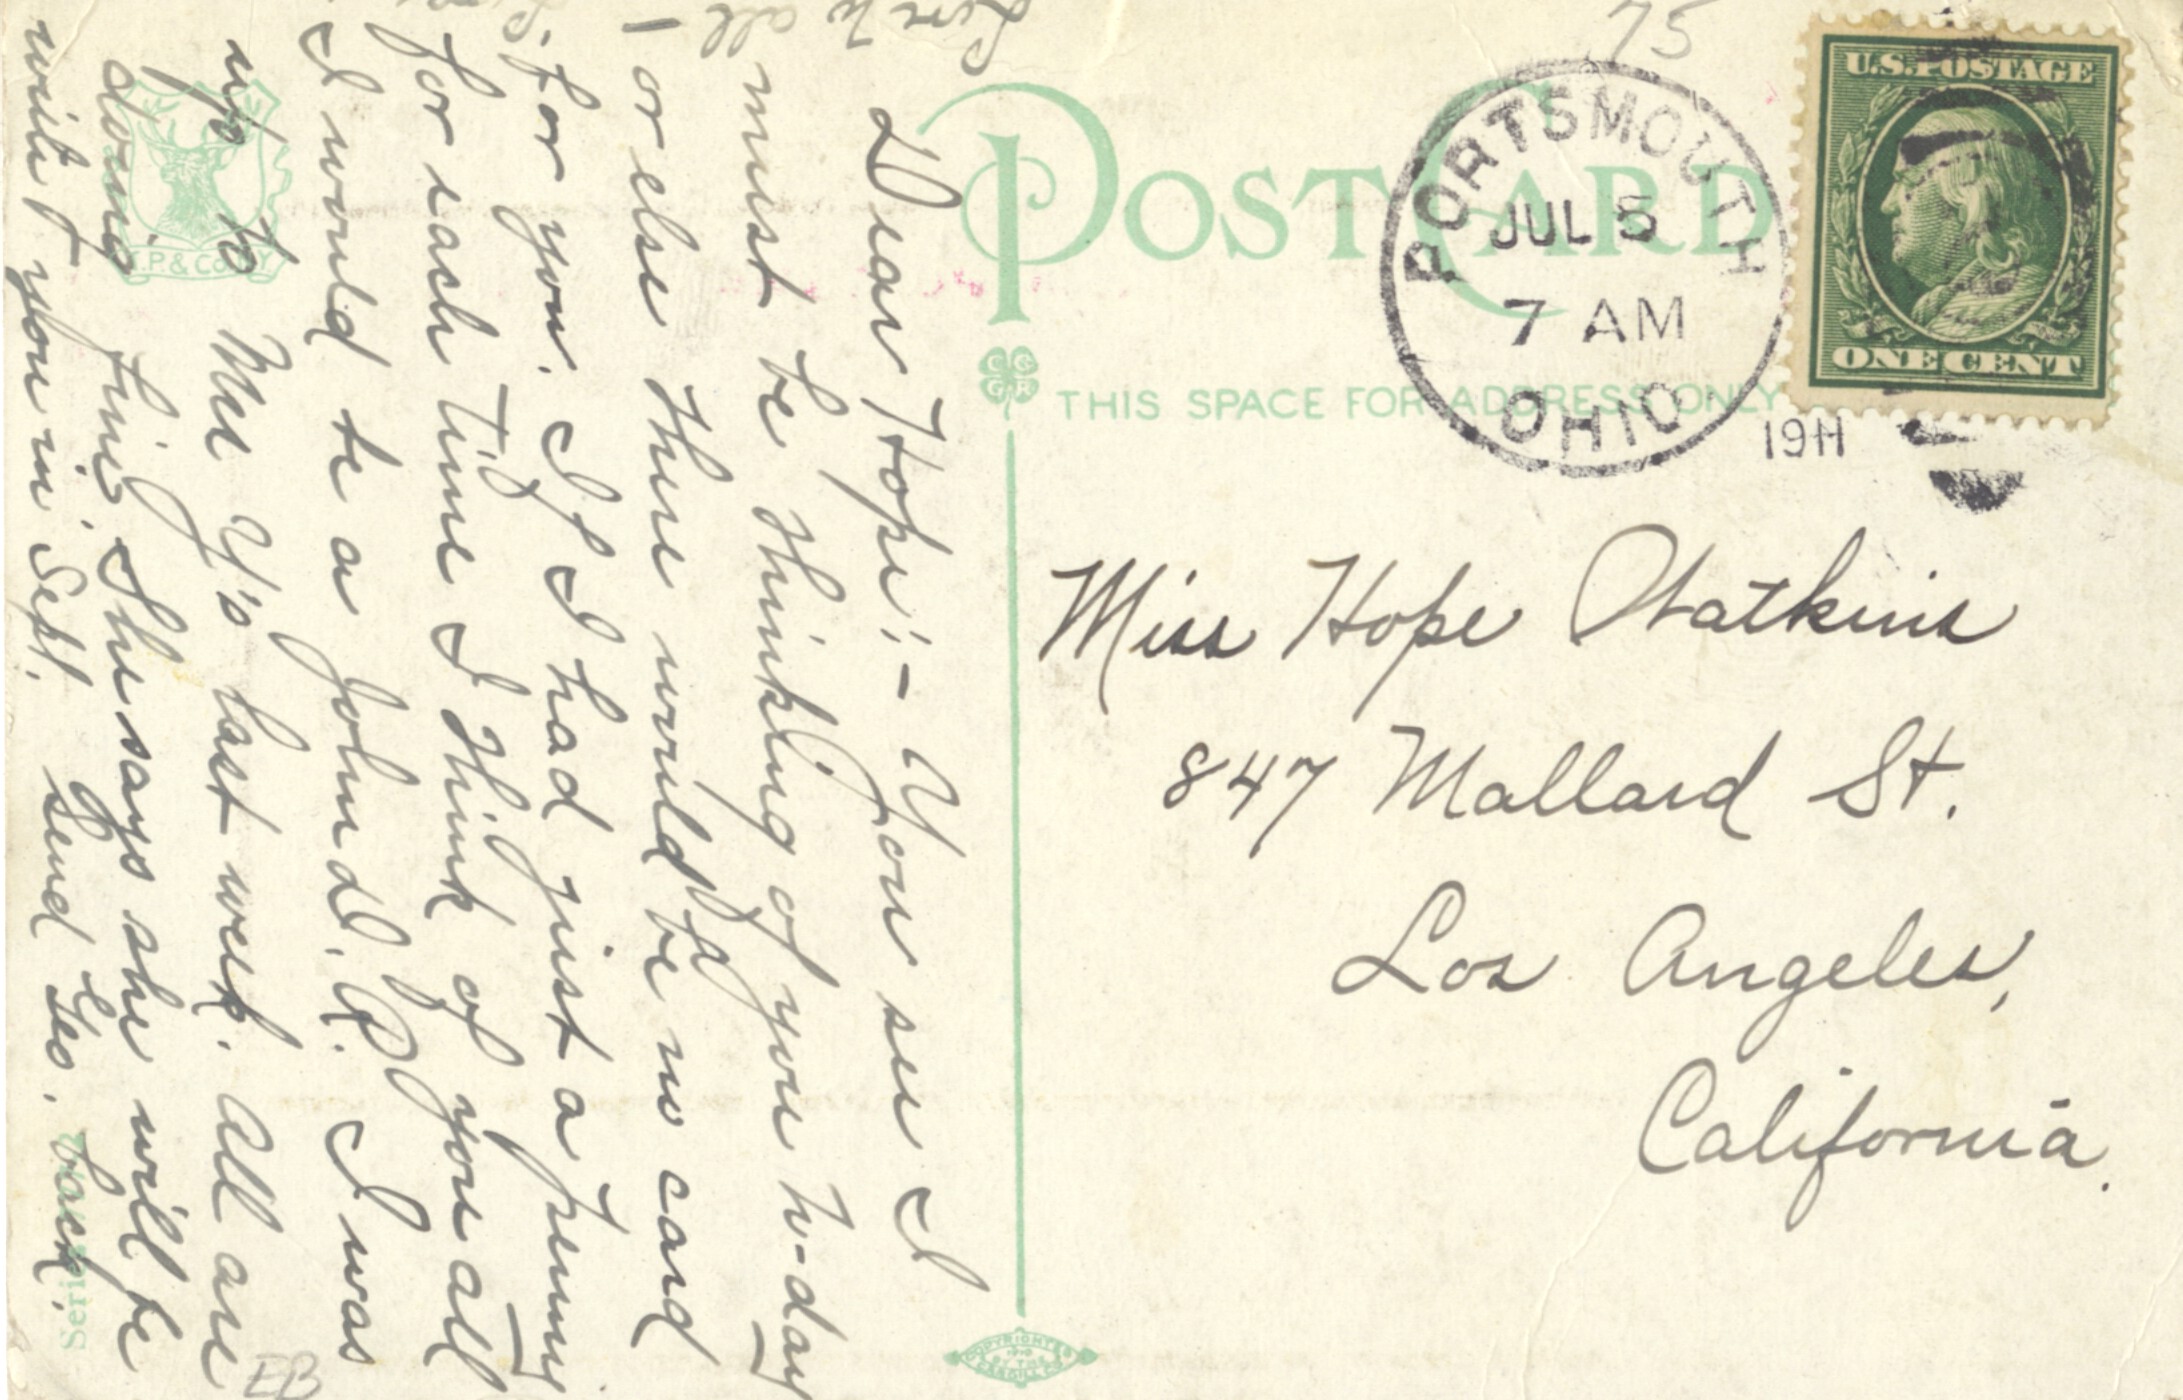 POST CARD
THIS SPACE FOR ADDRESS ONLY
PORTSMOUTH
JUL 5
7 AM
OHIO
1911
U.S. POSTAGE
ONE CENT
75
Miss Hope Watkins
847 Mallard St.
Los Angeles,
California.
Dear Hope:- You see I
must be thinking of you to-day
or else there would be no card
for you. If I had just a penny
for each time I think of you all
I would be a John D. R. I was
up to Mrs Y's last week. All are
doing fine. She says she will be
with you in Sept. Send Geo. back.
Love to
all -
P. & Co. N.Y.
Series
COPYRIGHTED
1910
BY THE
CANGILL CO.
EB